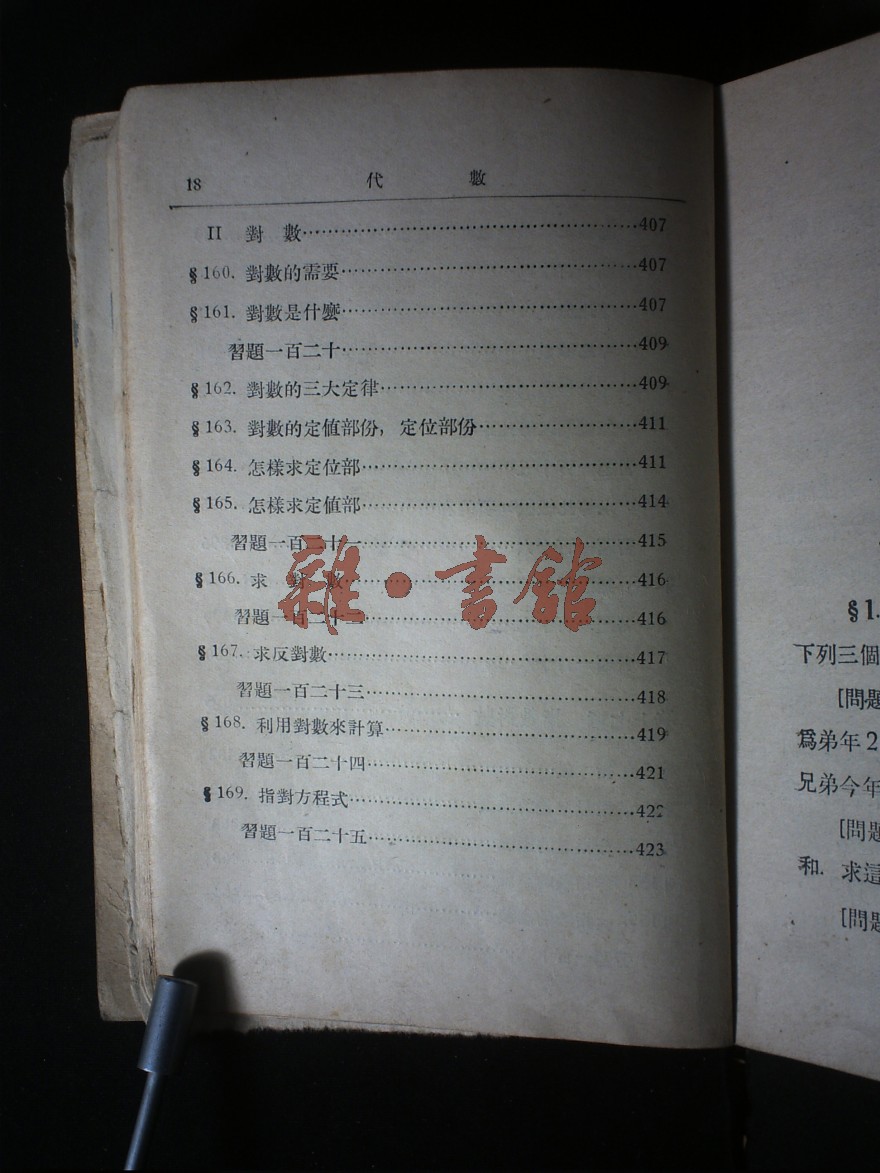 18 代 數
II 對 數……407
§160. 對數的需要……407
§161. 對數是什麼……407
習題一百二十……409
§162. 對數的三大定律……409
§163. 對數的定值部份，定位部份……411
§164. 怎樣求定位部……411
§165. 怎樣求定值部……414
習題一百二十一……415
§166. 求 對 數……416
習題一百二十二……416
§167. 求反對數……417
習題一百二十三……418
§168. 利用對數來計算……419
習題一百二十四……421
§169. 指對方程式……422
習題一百二十五……423
雜·書館
§1.
下列三個
[問題
爲弟年2
兄弟今年
[問題
和. 求這
[問題